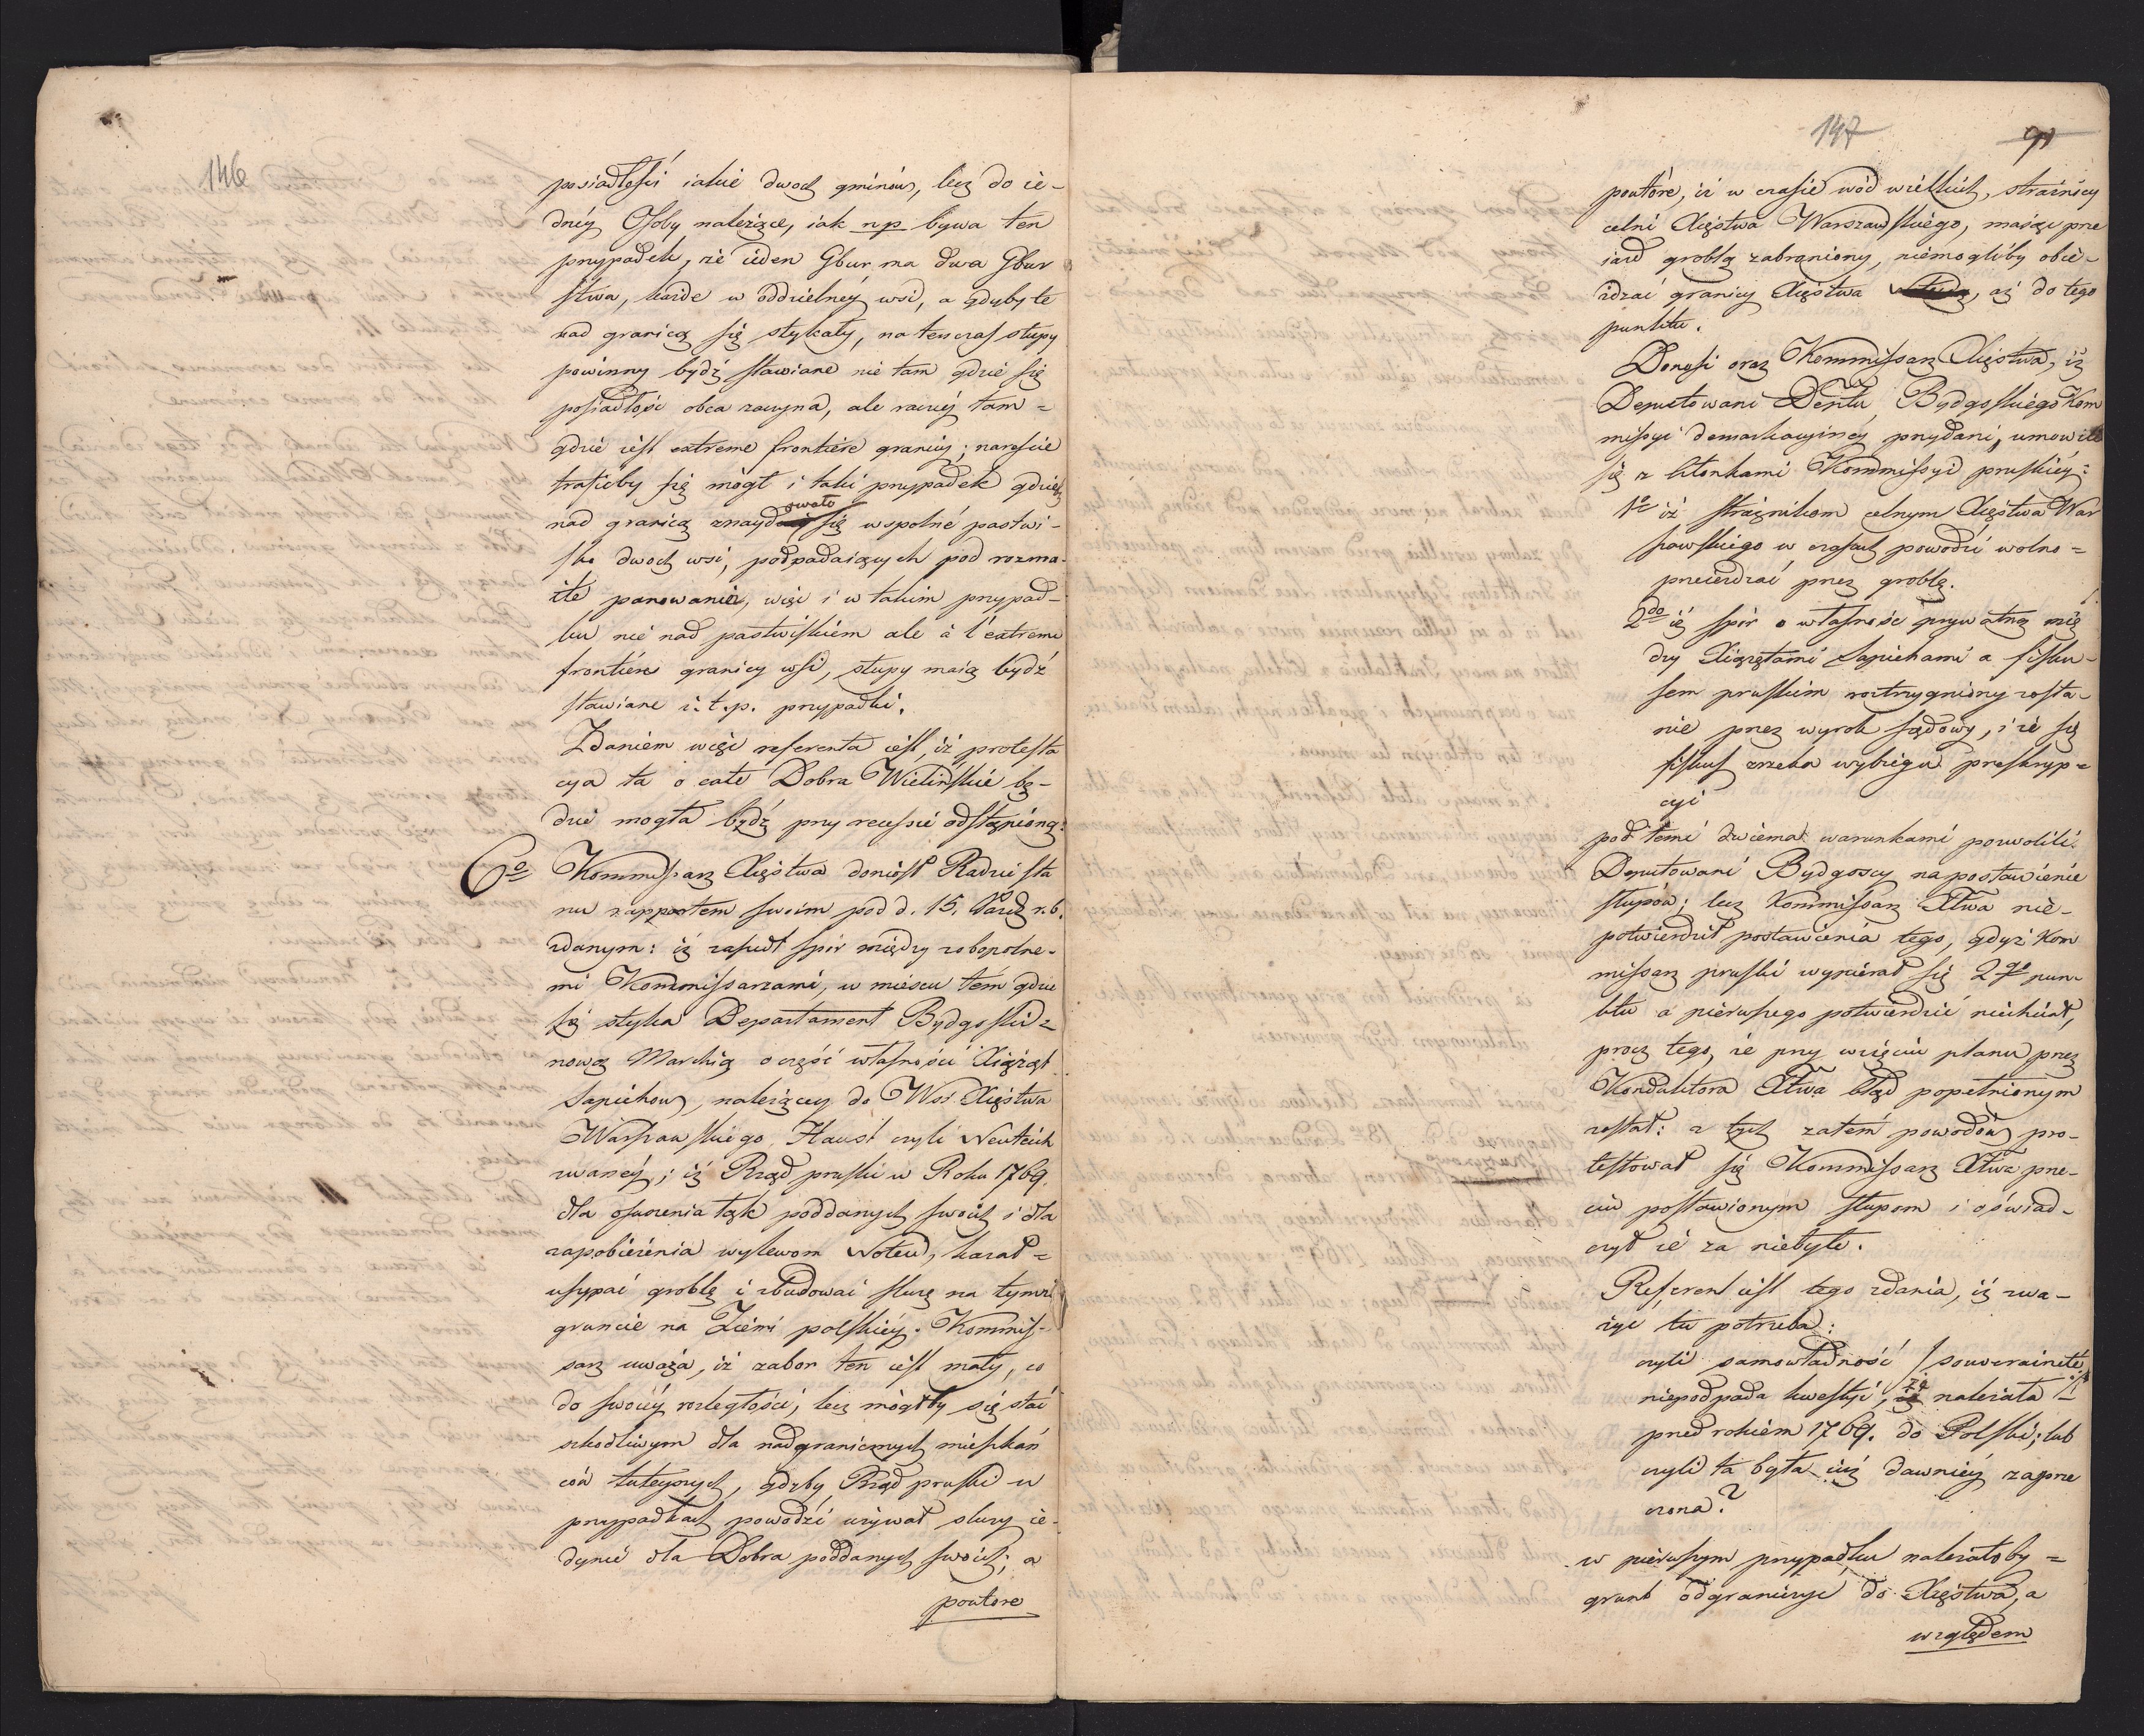 146
posiadłości iakie dwoch gminów, lecz do ie-
dnéy Osoby należące, iak np bywa ten
przypadek, że ieden Gbur ma dwa Gbur
stwa, każde w oddzielnéy wsi, a gdyby te
nad granicą się stykały, natenczas słupy
powinny bydź stawiane nie tam gdzie się
posiadłość obca zaczyna, ale raczéy tam =
gdzie iest extreme frontiere granicy; nareście
trafićby się mógł i taki przypadek gdzieby
nad granicą znaydowało się wspolné pastwi-
sko dwoch wsi, podpadaiących pod rozma-
ite panowania, więc i w takim przypad-
ku nie nad pastwiskiem ale à l'extreme
frontière granicy wsi, słupy maią bydź
stawiane i.t.p. przypadki.
Zdaniem więc referenta iest, iż protesta
cya ta o całe Dobra Wielińskié bę-
dzie mogła bydź przy recessie odstąpioną:
6o Kommissarz Xięstwa doniosł Radzie sta
nu rapportem swoim pod d. 15. Paźd r.b.
zdanym: iż zaszedł spór między zobopolne-
mi Kommissarzami, w miescu tem gdzie
się styka Departament Bydgoski z
nową Marchią o część własności Xiążąt
Sapiehow, należącey do Wsi Xięstwa
Warszawskiego, Haust czyli Neuteich
zwanéy; iż Rząd pruski w Roku 1769.
dla osuszenia łąk poddanych swoich i dla
zapobieżenia wylewom Noteci, kazał =
usypać groblę i zbudować sluzę na tymże
gruncie na Ziemi polskiéy. Kommis-
sarz uważa, iż zabor ten iest mały, co
do swoiéy rozległości, lecz mógłby się stać
szkodliwym dla nadgranicznych mieszkań
ców tuteyszych, gdyby Rząd pruski w
przypadkach powodzi używał sluzy ie-
dynie dla Dobra poddanych swoich; a
powtore
147 91
powtóre, iż w czasie wód wielkich, strażnicy
celni Xięstwa Warszawskiégo, maiąc prze
iazd groblą zabroniony, niemogliby obie-
żdżać granicy Xięstwa, aż do tego
punktu.
Donosi oraz Kommissarz Xięstwa, iż
Deputowani Deptu Bydgoskiégo Kom
missyi demarkacyinéy przydani, umowili
się z członkami Kommissyi pruskiéy:
1o iż strażnikom celnym Xięstwa War
szawskiego w czasach powodzi wolno =
przeieżdzać przez groblę.
2do iż spór o własność prywatną mię
dzy Xiążętami Sapiehami a fisku-
sem pruskim roztrzygniony zosta-
nie przez wyrok sądowy, i że się
fiskus zrzeka wybiegu preskryp=
cyi
pod temi dwiema warunkami pozwolili
Deputowani Bydgoscy na postawienie
słupów; lecz Kommissarz Xtwa nie-
potwierdził postawienia tego, gdyż Kom
missarz pruski wypierał się 2go pun-
ktu a pierwszego potwierdzić niechciał,
procz tego, że przy wzięciu planu przez
Konduktora Xtwa błąd popełnionym
został: z tych zatém powodów pro-
testował się Kommissarz Xtwa prze-
ciw postawionym słupom i oświad-
czył ie za niebyłe.
Referent iest tego zdania, iż zwa-
żyć tu potrzeba:
czyli samowładność /souverainété/
niepodpada kwestyi, że należała
przed rokiem 1769. do Polski; lub
czyli ta była iuż dawniéy zaprze
czona?
w pierwszym przypadku należałoby =
grunt odgraniczyć do Xięstwa, a
względem